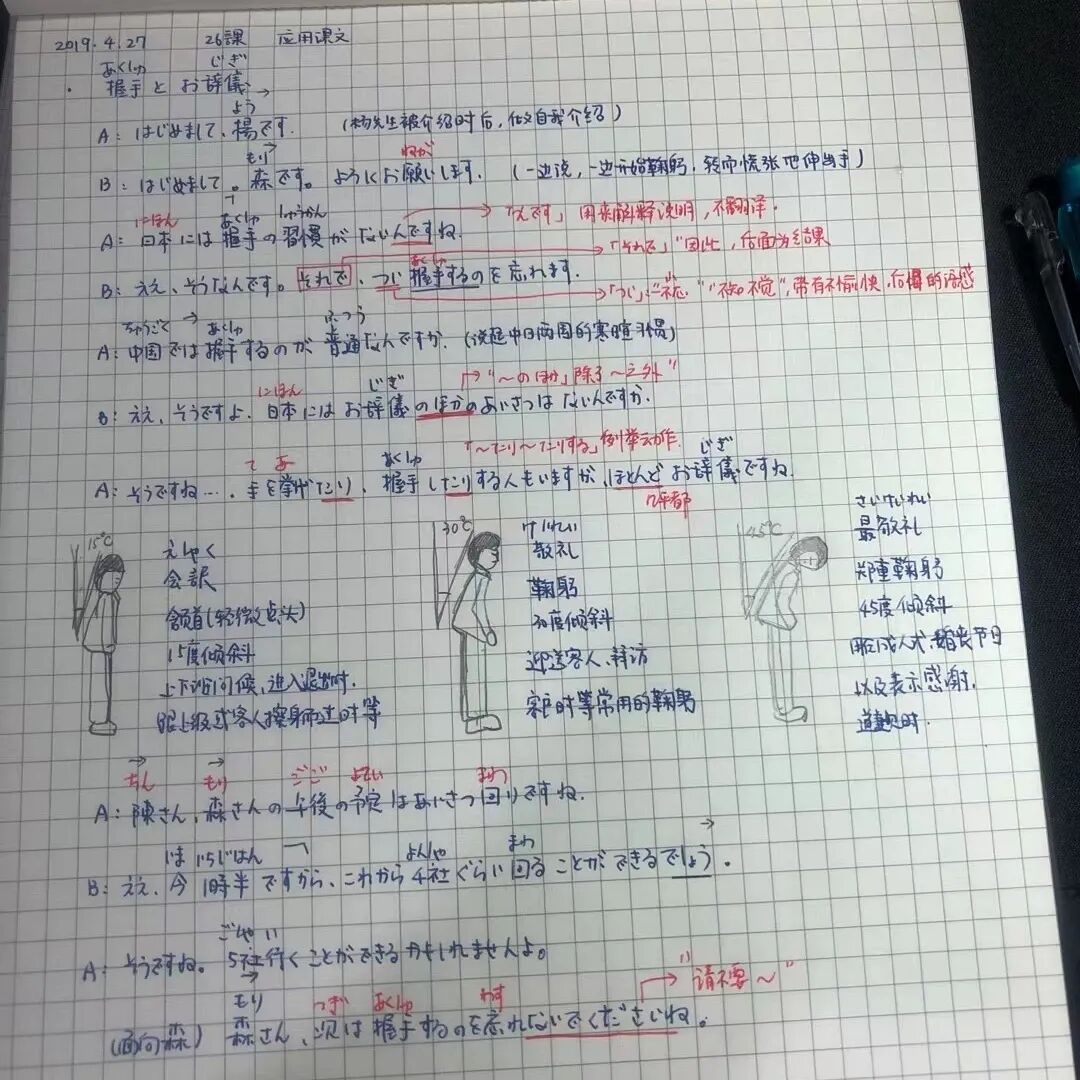 2019.4.27 26課 应用课文
あくしゅ じぎ
・ 握手とお辞儀
よう
A: はじめまして、楊です. (杨先生被介绍时后,做自我介绍)
もり ねが
B: はじめまして。森です。ようしくお願いします. (一边说,一边开始鞠躬,转而慌张地伸出手)
にほん あくしゅ しゅうかん 「んです」用来解释说明,不翻译.
A: 日本には握手の習慣がないんですね.
「それで」"因此,后面为结果
あくしゅ
B: ええ、そうなんです。それで、つい握手するのを忘れます.
「つい」 "不知不觉",带有不愉快,后悔的语感
ちゅうごく あくしゅ ふつう
A: 中国では握手するのが普通なんですか. (说起中日两国的寒暄习惯)
にほん じぎ "~のほか」除了~之外"
B: ええ、そうですよ. 日本にはお辞儀のほかのあいさつはないんですか.
「~たり~たりする」例举动作.
て あ あくしゅ じぎ
A: そうですね…. 手を挙げたり、握手したりする人もいますが,ほとんどお辞儀ですね.
几乎都
15℃
えしゃく
会釈
颔首(轻微点头)
15度倾斜
上下班问候,进入退出时.
跟上级或客人擦身而过时等
30℃
けいれい
敬礼
鞠躬
30度倾斜
迎送客人、拜访
客户时等常用的鞠躬
45℃
さいけいれい
最敬礼
郑重鞠躬
45度倾斜
用在成人式、婚丧节日
以及表示感谢.
道歉时.
ちん もり ごご よてい まわ
A: 陳さん、森さんの午後の予定はあいさつ回りですね.
いま いちじはん よんしゃ まわ
B: ええ、今1時半ですから、これから4社ぐらい回ることができるでしょう.
ごしゃ い
A: そうですね。5社行くことができるかもしれませんよ。
"请不要~"
もり つぎ あくしゅ わす
(面向森) 森さん、次は握手するのを忘れないでくださいね。